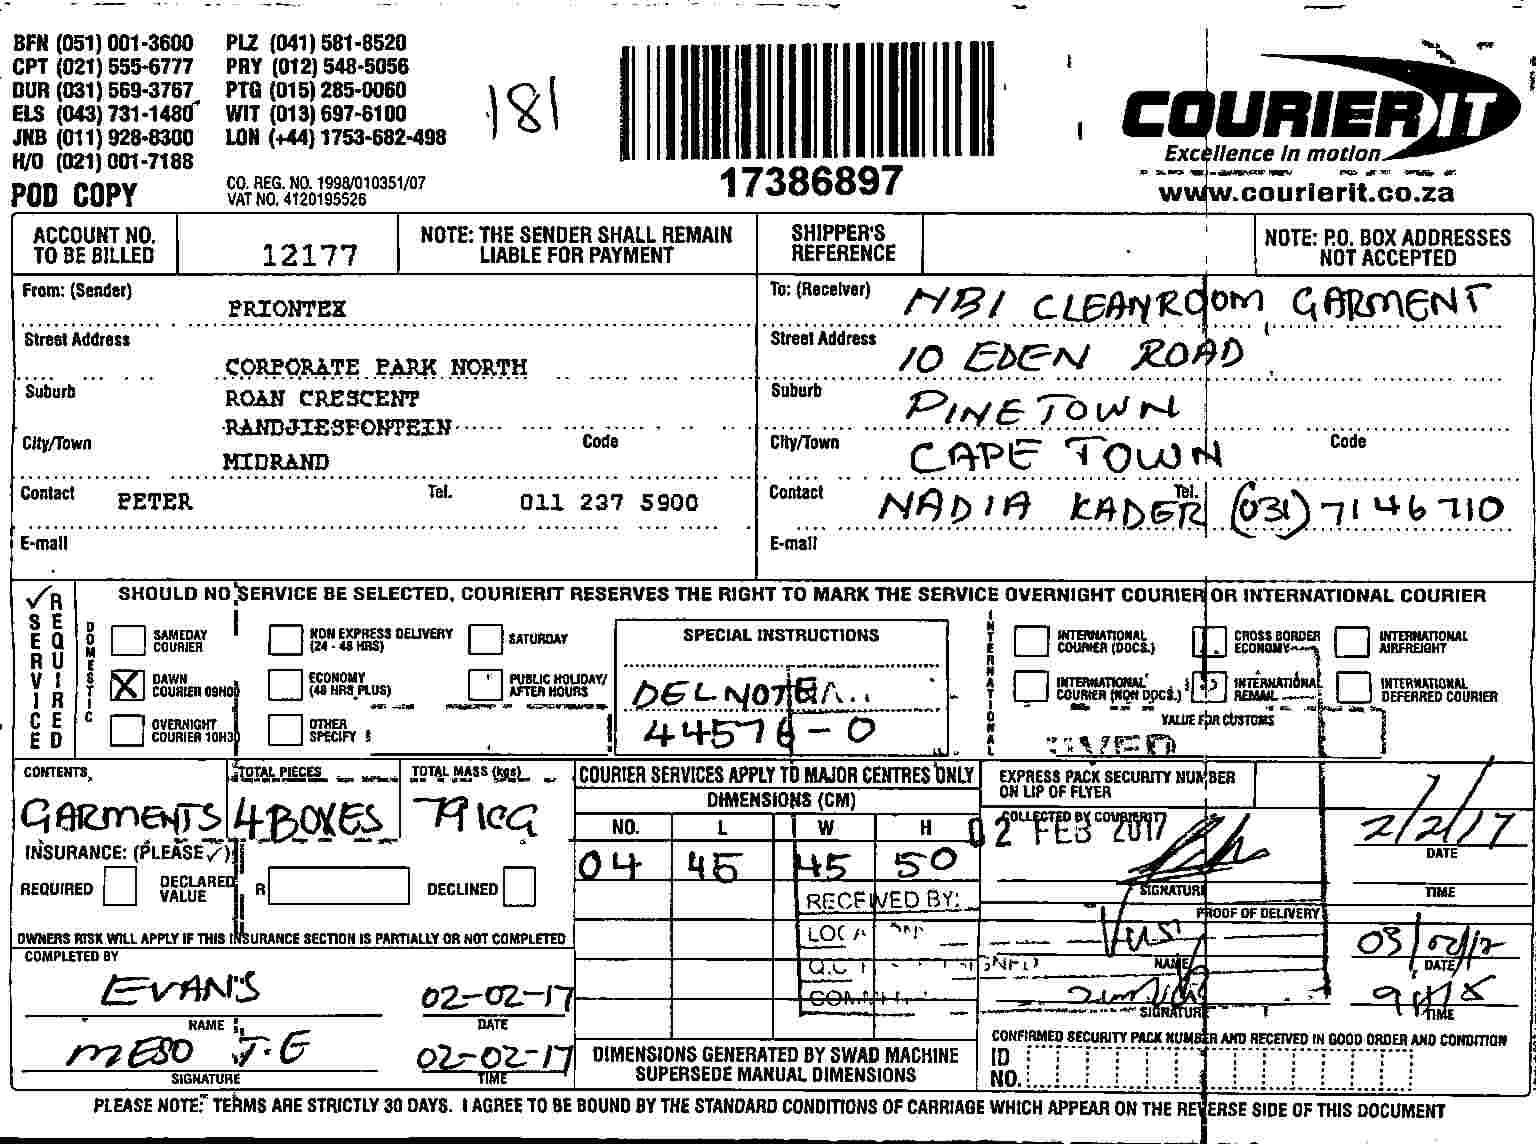 BFN (051) 001-3600 PLZ (041) 581-8520
CPT (021) 555-6777 PRY (012) 548-5056
DUR (031) 569-3767 PTG (015) 285-0060
ELS (043) 731-1480 WIT (013) 697-6100
JNB (011) 928-8300 LON (+44) 1753-682-498
H/O (021) 001-7188
181
POD COPY
CO. REG. NO. 1998/010351/07
VAT NO. 4120195526
17386897
COURIER IT
Excellence in motion
www.courierit.co.za
ACCOUNT NO. TO BE BILLED
12177
NOTE: THE SENDER SHALL REMAIN LIABLE FOR PAYMENT
SHIPPER'S REFERENCE
NOTE: P.O. BOX ADDRESSES NOT ACCEPTED
From: (Sender) PRIONTEX
Street Address CORPORATE PARK NORTH
Suburb ROAN CRESCENT
RANDJIESFONTEIN
City/Town MIDRAND Code
Contact PETER Tel. 011 237 5900
E-mail
To: (Receiver) NBI CLEANROOM GARMENT
Street Address 10 EDEN ROAD
Suburb PINETOWN
City/Town CAPE TOWN Code
Contact NADIA KADER Tel. (031) 7146710
E-mail
SERVICE REQUIRED
SHOULD NO SERVICE BE SELECTED, COURIERIT RESERVES THE RIGHT TO MARK THE SERVICE OVERNIGHT COURIER OR INTERNATIONAL COURIER
DOMESTIC
SAMEDAY COURIER
NON EXPRESS DELIVERY (24 - 48 HRS)
SATURDAY
X DAWN COURIER 09H00
ECONOMY (48 HRS PLUS)
PUBLIC HOLIDAY/ AFTER HOURS
OVERNIGHT COURIER 10H30
OTHER SPECIFY
SPECIAL INSTRUCTIONS
DELNOTE
44576-0
INTERNATIONAL
INTERNATIONAL COURIER (DOCS.)
CROSS BORDER ECONOMY
INTERNATIONAL AIRFREIGHT
INTERNATIONAL COURIER (NON DOCS.)
INTERNATIONAL REMAIL
INTERNATIONAL DEFERRED COURIER
VALUE FOR CUSTOMS
CONTENTS
GARMENTS
TOTAL PIECES
4 BOXES
TOTAL MASS (kgs)
79 KG
INSURANCE: (PLEASE ✓)
REQUIRED
DECLARED VALUE
R
DECLINED
OWNERS RISK WILL APPLY IF THIS INSURANCE SECTION IS PARTIALLY OR NOT COMPLETED
COMPLETED BY
EVANS 02-02-17
NAME DATE
MESO J.E 02-02-17
SIGNATURE TIME
COURIER SERVICES APPLY TO MAJOR CENTRES ONLY
DIMENSIONS (CM)
NO. L W H
04 45 45 50
RECEIVED BY:
DIMENSIONS GENERATED BY SWAD MACHINE SUPERSEDE MANUAL DIMENSIONS
EXPRESS PACK SECURITY NUMBER ON LIP OF FLYER
COLLECTED BY COURIERIT
02 FEB 2017
2/2/17
SIGNATURE
DATE
TIME
PROOF OF DELIVERY
NAME
DATE
SIGNATURE
TIME
CONFIRMED SECURITY PACK NUMBER AND RECEIVED IN GOOD ORDER AND CONDITION
ID NO.
PLEASE NOTE: TERMS ARE STRICTLY 30 DAYS. I AGREE TO BE BOUND BY THE STANDARD CONDITIONS OF CARRIAGE WHICH APPEAR ON THE REVERSE SIDE OF THIS DOCUMENT